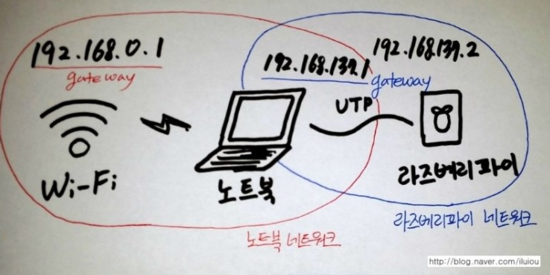 192.168.0.1
gateway
192.168.137.1
gateway
192.168.137.2
UTP
Wi-Fi
노트북
라즈베리파이
노트북 네트워크
라즈베리파이 네트워크
http://blog.naver.com/iluiou